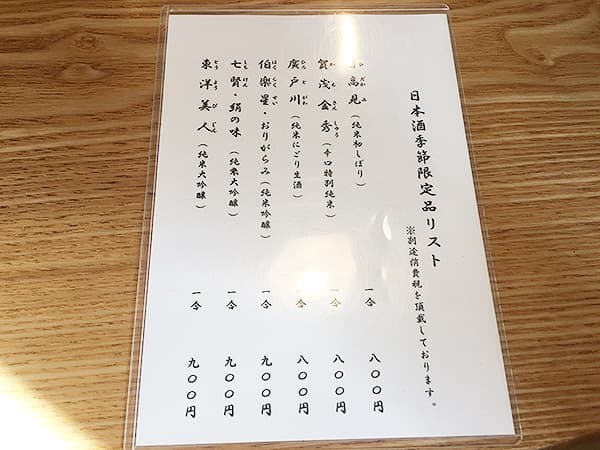 日本酒季節限定品リスト
※別途消費税を頂戴しております。
日高見（純米初しぼり） 一合 八〇〇円
賀茂金秀（辛口特別純米） 一合 八〇〇円
廣戸川（純米にごり生酒） 一合 八〇〇円
伯樂星・おりがらみ（純米吟醸） 一合 九〇〇円
七賢・絹の味（純米大吟醸） 一合 九〇〇円
東洋美人（純米大吟醸） 一合 九〇〇円